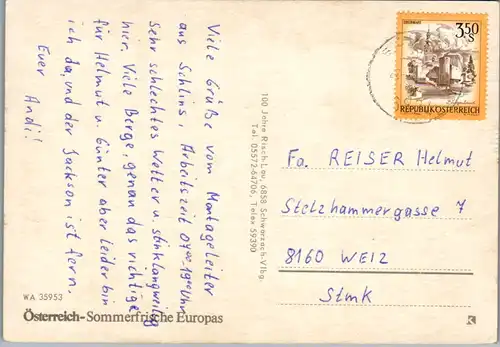 Viele Grüße vom Montageleiter
aus Schlins, Arbeitszeit 04⁰⁰ 19⁰⁰ Uhr
sehr schlechtes Wetter u. stinklangweilig
hir. Viele Berge, genau das richtige
für Helmut u. Günter aber leider bin
ich da, und der Jackson ist fern,
Euer Andi!
100 Jahre Risch Lau, 6858 Schwarzach-Vlbg.
Tel. 05572-64706, Telex 59390
3.50
S
REPUBLIK ÖSTERREICH
Fa. REISER Helmut
Stelzhammergasse 7
8160 WEIZ
Stmk
WA 35953
Österreich-Sommerfrische Europas